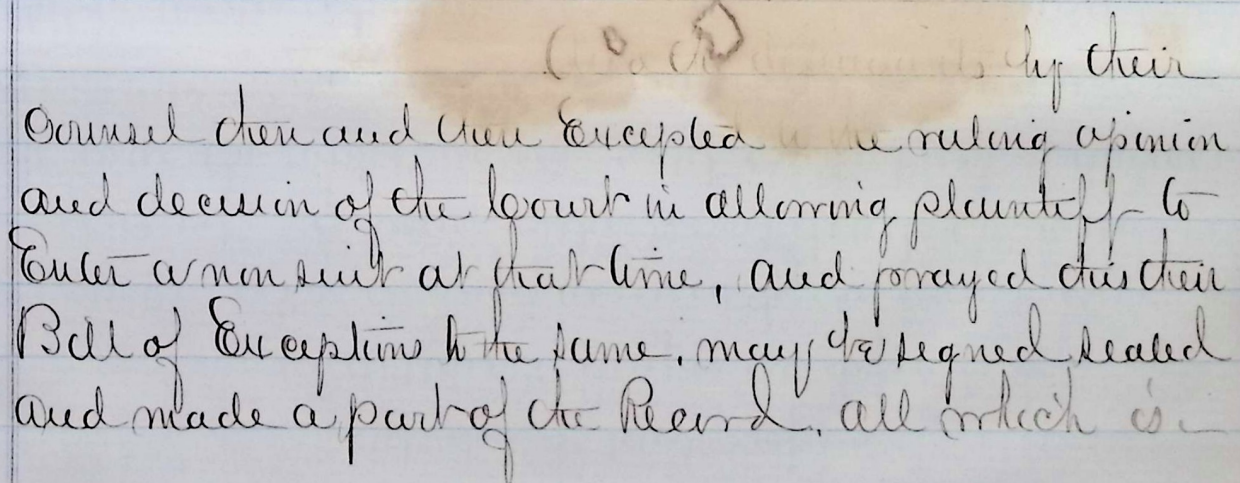 by their
Counsel then and there Excepted ruling opinion
and decision of the Court in allowing plaintiff to
Enter a non suit at that time, and prayed this their
Bill of Exceptions to the same, may be signed sealed
and made a part of the Record, all which is